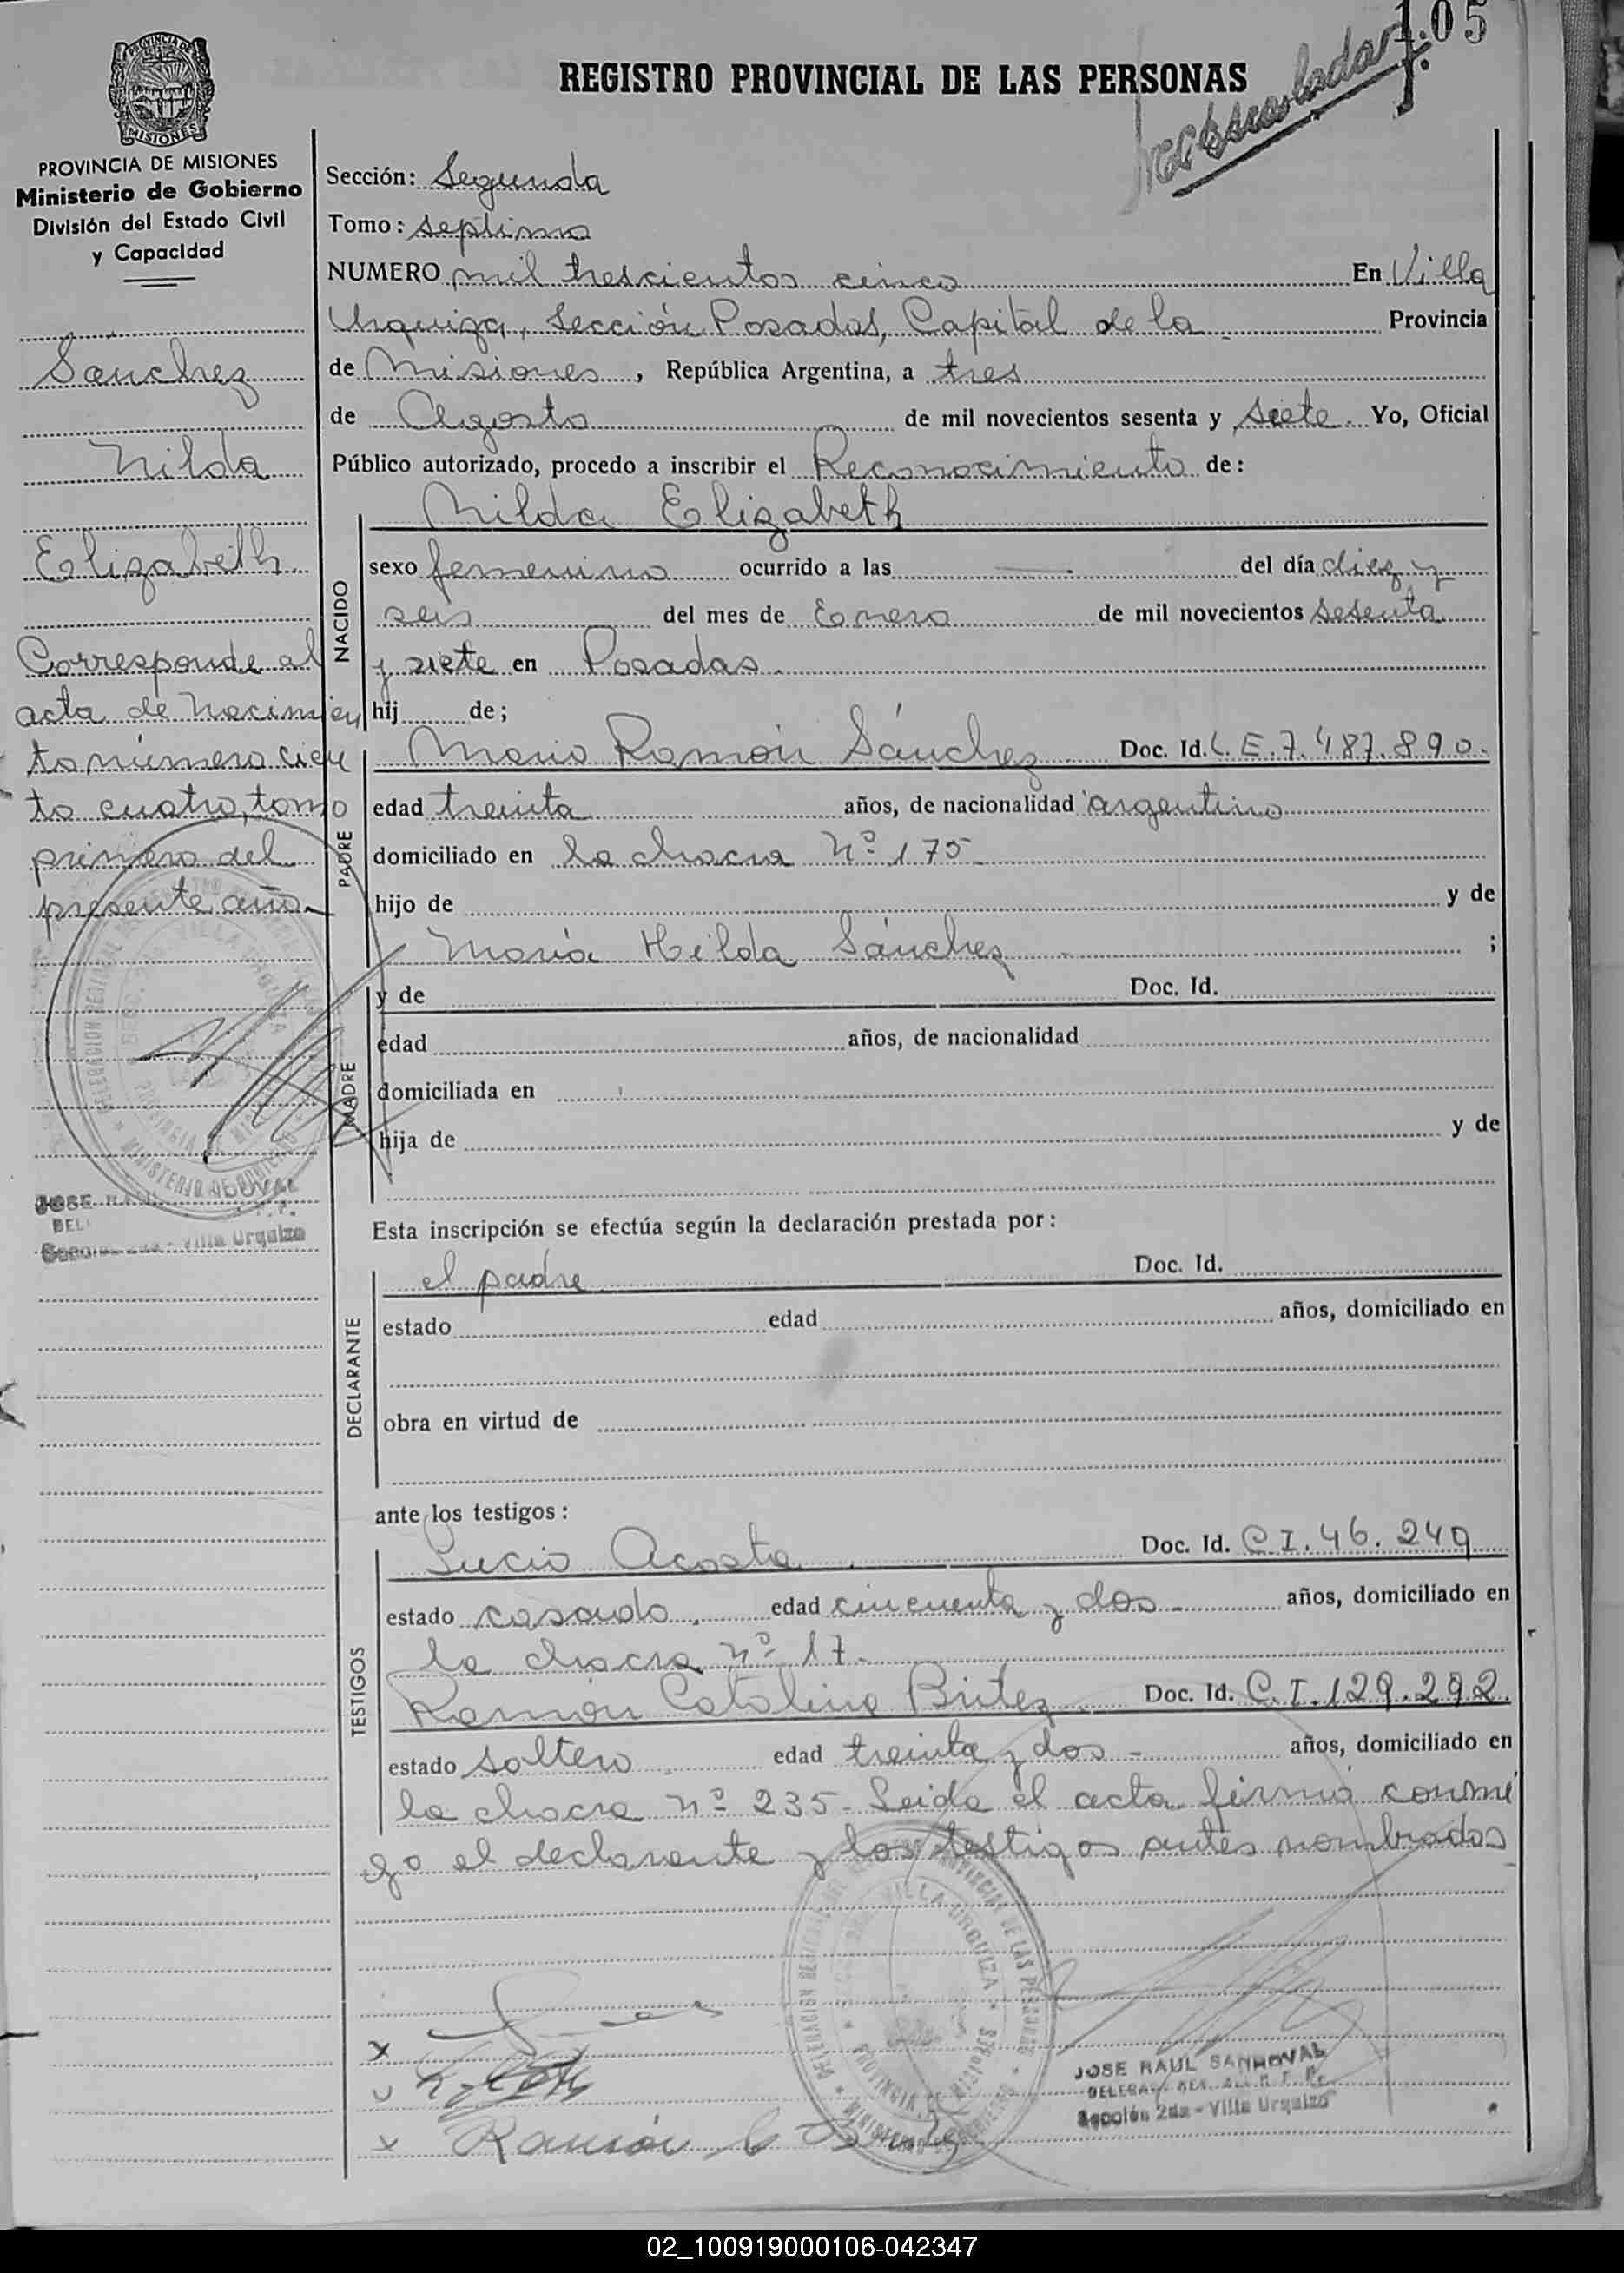 105
REGISTRO PROVINCIAL DE LAS PERSONAS
PROVINCIA DE MISIONES
Ministerio de Gobierno
División del Estado Civil
y Capacidad
Sánchez
Nilda
Elizabeth
Corresponde al
acta de Nacimien
to número cien
to cuatro, tomo
primero del
presente año.
Sección: Segunda
Tomo: septimo
NUMERO mil trescientos cinco En Villa
Urquiza, Sección Posadas, Capital de la Provincia
de Misiones, República Argentina, a tres
de Agosto de mil novecientos sesenta y siete. Yo, Oficial
Público autorizado, procedo a inscribir el Reconocimiento de:
Nilda Elizabeth
NACIDO
sexo femenino ocurrido a las — del día diez y
seis del mes de Enero de mil novecientos sesenta
y siete en Posadas
hij de;
PADRE
Mario Ramón Sánchez Doc. Id. L.E.7.487.890.
edad treinta años, de nacionalidad argentino
domiciliado en la chacra Nº 175
hijo de y de
María Hilda Sánchez ;
MADRE
y de Doc. Id.
edad años, de nacionalidad
domiciliada en
hija de y de
Esta inscripción se efectúa según la declaración prestada por:
DECLARANTE
el padre Doc. Id.
estado edad años, domiciliado en
obra en virtud de
ante los testigos:
TESTIGOS
Lucio Acosta Doc. Id. C.I.46.249
estado casado edad cincuenta y dos años, domiciliado en
la chacra nº 17.
Ramón Catalino Britez Doc. Id. C.I.129.292.
estado soltero edad treinta y dos años, domiciliado en
la chacra nº 235. Leida el acta firmó conmi
go el declarante y los testigos antes nombrados
VILLA URQUIZA
JOSE RAUL SANDOVAL
Sección 2da - Villa Urquiza
Ramón C Britez
02_100919000106-042347